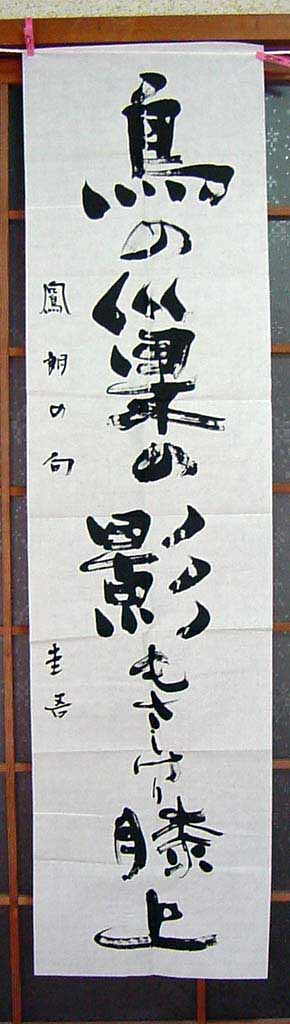 鳥の巣の影もさしけり膝の上
鳳朗の句 圭吾